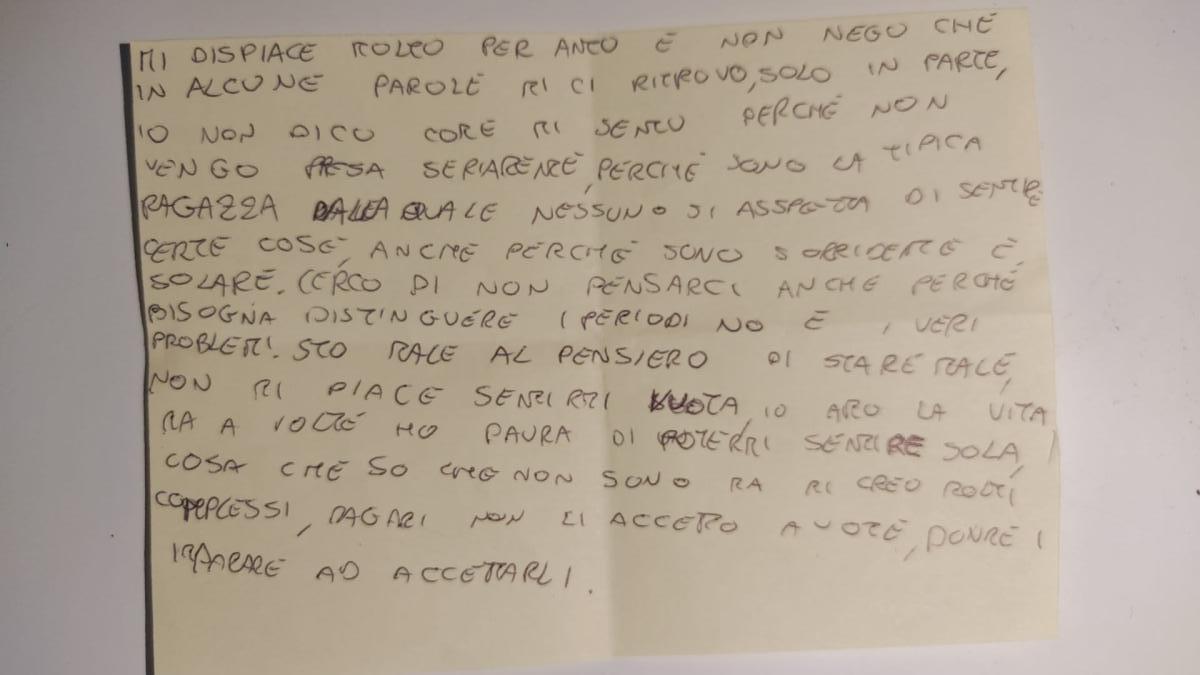 MI DISPIACE MOLTO PER ANTO E NON NEGO CHE
IN ALCUNE PAROLE MI CI RITROVO, SOLO IN PARTE,
IO NON DICO COME MI SENTO PERCHÉ NON
VENGO PRESA SERIAMENTE, PERCHÉ SONO LA TIPICA
RAGAZZA DALLA QUALE NESSUNO SI ASSPETTA DI SENTIRE
CERTE COSE, ANCHE PERCHÉ SONO SORRIDENTE E
SOLARE. CERCO DI NON PENSARCI ANCHE PERCHÉ
BISOGNA DISTINGUERE I PERIODI NO E I VERI
PROBLEMI. STO MALE AL PENSIERO DI STARE MALE,
NON MI PIACE SENTIRMI VUOTA, IO AMO LA VITA
MA A VOLTE HO PAURA DI POTERMI SENTIRE SOLA,
COSA CHE SO CHE NON SONO MA MI CREO MOLTI
COMPLESSI, MAGARI NON LI ACCETTO A VOTE, DOVREI
IMPARARE AD ACCETTARLI.